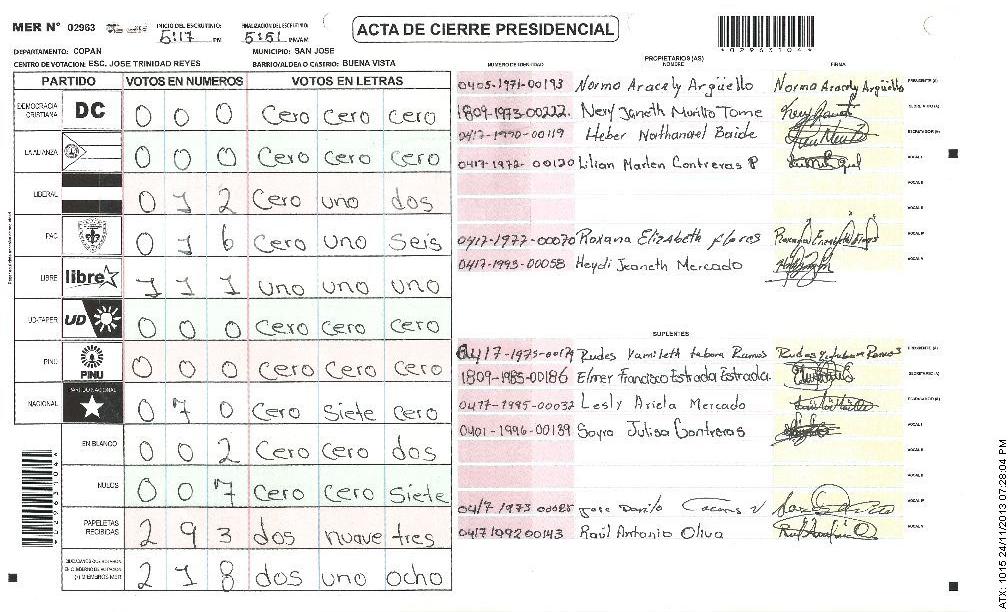 MER N° 02963 INICIO DEL ESCRUTINIO: 5:17 PM FINALIZACIÓN DEL ESCRUTINIO: 5:51 PM/AM
ACTA DE CIERRE PRESIDENCIAL
DEPARTAMENTO: COPAN MUNICIPIO: SAN JOSE
CENTRO DE VOTACION: ESC. JOSE TRINIDAD REYES BARRIO/ALDEA O CASERIO: BUENA VISTA
PARTIDO VOTOS EN NUMEROS VOTOS EN LETRAS
DEMOCRACIA CRISTIANA DC 0 0 0 Cero Cero cero
LA ALIANZA 0 0 0 Cero Cero cero
LIBERAL 0 1 2 Cero uno dos
PAC 0 1 6 Cero uno Seis
LIBRE libre 1 1 1 uno uno uno
UD-FAPER UD 0 0 0 Cero Cero cero
PINU PINU 0 0 0 Cero Cero Cero
NACIONAL PARTIDO NACIONAL 0 7 0 Cero Siete cero
EN BLANCO 0 0 2 Cero Cero dos
NULOS 0 0 7 Cero Cero Siete
PAPELETAS RECIBIDAS 2 9 3 dos nueve tres
2 1 8 dos uno ocho
PROPIETARIOS (AS)
NUMERO DE IDENTIDAD NOMBRE FIRMA
0405-1971-00193 Norma Aracely Argüello Norma Aracely Argüello PRESIDENTE (A)
1809-1973-00222 Nery Janeth Murillo Tome SECRETARIO (A)
0417-1990-00119 Heber Nathanael Baide ESCRUTADOR (A)
0417-1972-00120 Lilian Marlen Contreras P VOCAL I
VOCAL II
VOCAL III
0417-1977-00070 Roxana Elizabeth flores VOCAL IV
0417-1993-00058 Heydi Jeaneth Mercado VOCAL V
SUPLENTES
0417-1975-00179 Rudes Yamileth tabora Ramos PRESIDENTE (A)
1809-1985-00186 Elmer Francisco Estrada Estrada. SECRETARIO (A)
0417-1995-00032 Lesly Ariela Mercado ESCRUTADOR (A)
0401-1996-00139 Sayra Julisa Contreras VOCAL I
VOCAL II
VOCAL III
0417 1973 00025 Jose Danilo VOCAL IV
0417 1992 00143 Raúl Antonio Oliva VOCAL V
ATX: 1015 24/11/2013 07:28:04 PM